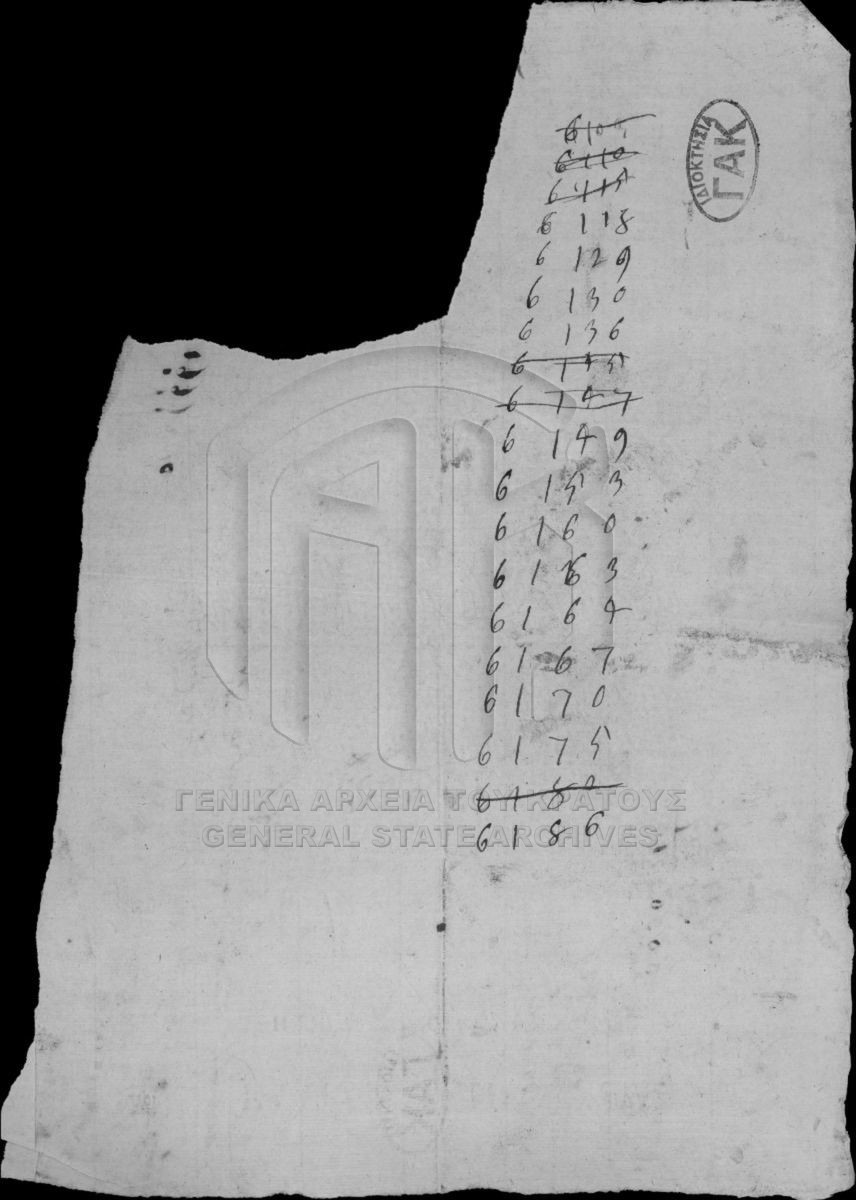 ΙΔΙΟΚΤΗΣΙΑ
ΓΑΚ
6110
6115
6118
6129
6130
6136
6145
6147
6149
6153
6160
6163
6164
6167
6170
6175
6180
6186
ΓΕΝΙΚΑ ΑΡΧΕΙΑ ΤΟΥ ΚΡΑΤΟΥΣ
GENERAL STATE ARCHIVES